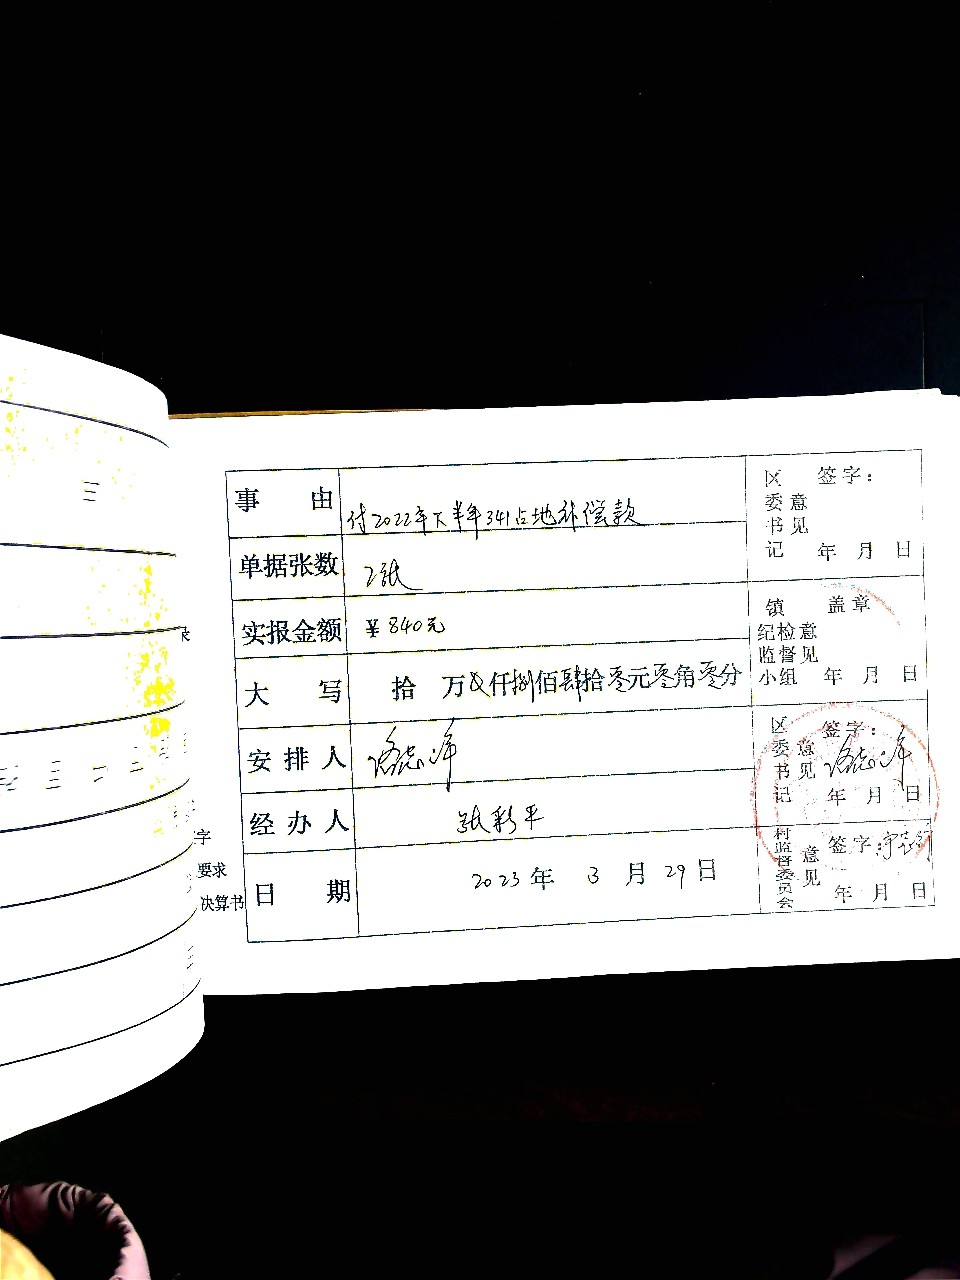 事由 付2022年下半年341占地补偿款
单据张数 2张
实报金额 ¥840元
大写 拾 万 仟捌佰肆拾零元零角零分
安排人
经办人 张彩平
日期 2023年3月29日
区委书记意见 签字：
年 月 日
镇纪检监督小组意见 盖章
年 月 日
区委书记意见 签字：
年 月 日
村监督委员会意见 签字：
年 月 日
字
要求
决算书